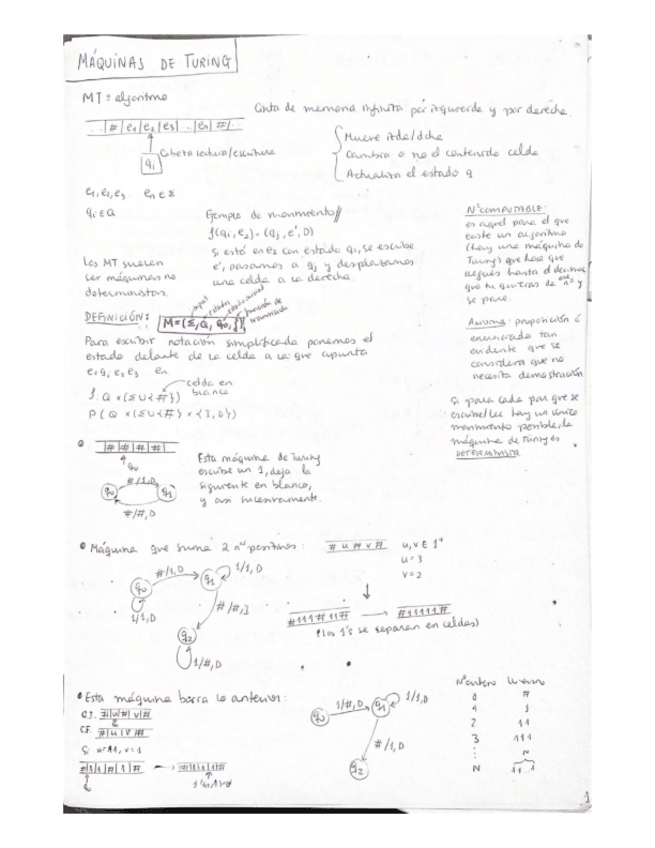 MÁQUINAS DE TURING
MT = algoritmo
Cinta de memoria infinita por izquierda y por derecha.
...|#|e1|e2|e3|...|en|#|...
qi
Cabeza lectura/escritura
Mueve izda/dcha
Cambia o no el contenido celda
Actualiza el estado q
e1, e2, e3 en ∈ Σ
qi ∈ Q
Ejemplo de movimiento//
f(qi, e2) = (qj, e', D)
Si está en e2 con estado qi, se escribe
e', pasamos a qj y desplazamos
una celda a la derecha
Las MT suelen
ser máquinas no
deterministas.
Nº COMPUTABLE:
es aquel para el que
existe un algoritmo
(hay una máquina de
Turing) que hace que
llegues hasta el decimal
que tu quieras de ese nº y
se pare.
DEFINICIÓN:
M=(Σ, Q, q0, f)
estados
función de
transición
Para escribir notación simplificada ponemos el
estado delante de la celda a la que apunta
e1 qi e2 e3 en
celda en
blanco
f: Q x (Σ U {#})
P( Q x (Σ U {#} x {I, D})
Axioma: proposición o
enunciado tan
evidente que se
considera que no
necesita demostración
Si para cada par que se
escribe/lee hay un único
movimiento posible, la
máquina de Turing es
DETERMINISTA
|#|#|#|#|
q0
#/1,D
q0
q1
#/#,D
Esta máquina de Turing
escribe un 1, deja la
siguiente en blanco,
y así sucesivamente.
Máquina que suma 2 nºs positivos:
# u # v #
u, v ∈ 1+
u = 3
v = 2
q0
#/1,D
q1
1/1,D
1/1,D
#/#,I
q2
1/#,D
#111#11#
#11111#
(los 1's se separan en celdas)
Esta máquina borra lo anterior:
C.I. #|u|#|v|#
CF. #|u|v|#
Si u=11, v=1
#|1|1|#|1|#
q0
1/#,D
q1
1/1,D
#/1,D
q2
Nº entero Unario
0 #
1 1
2 11
3 111
⋮ ~
N 11...1
1